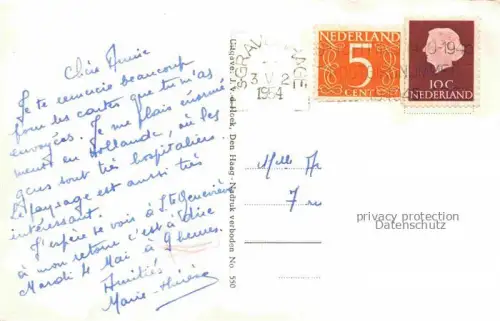 Chère Annie
Je te remercie beaucoup
pour les cartes que tu m'as
envoyées. Je me plais énormé-
ment en Hollande, où les
gens sont très hospitaliers.
Le paysage est aussi très
intéressant.
J'espère te voir à Ste Geneviève
à mon retour c'est à dire
Mardi 4 Mai à 9 heures.
Amitiés
Marie-Thérèse
Uitgave J. v. d. Hoek, Den Haag - Nadruk verboden No. 550
'S GRAVENHAGE
3 V 2
1954
NEDERLAND
5
CENT
10 C
NEDERLAND
Melle
7 ru
privacy protection
Datenschutz